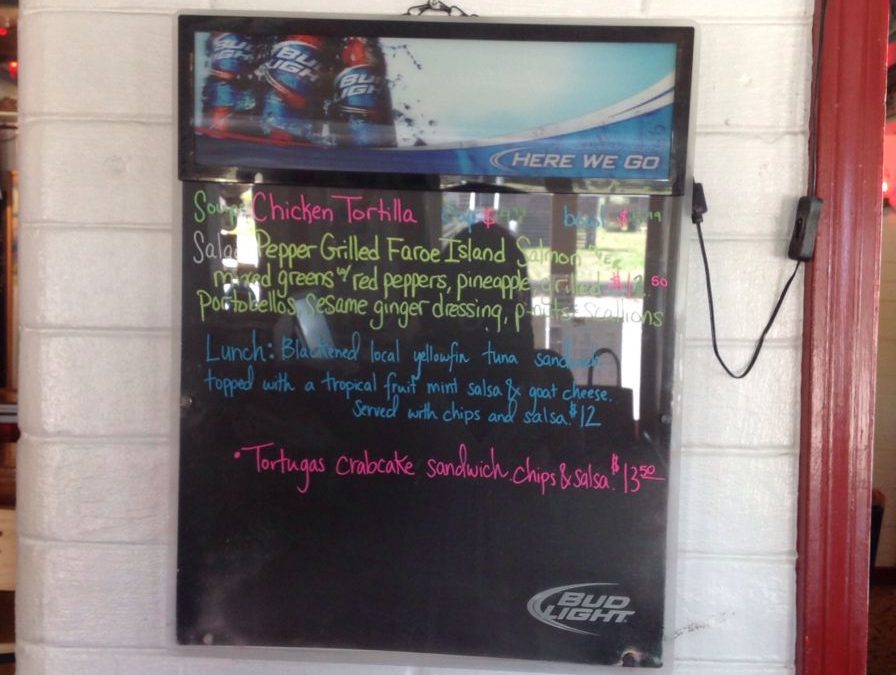 BUD LIGHT
BUD LIGHT
HERE WE GO
Soup: Chicken Tortilla Cup $ bowl $
Salad Pepper Grilled Faroe Island Salmon over
mixed greens w/ red peppers, pineapple, grilled $12.50
Portobello's, sesame ginger dressing, p-nuts scallions
Lunch: Blackened local yellowfin tuna sandwich
topped with a tropical fruit mint salsa & goat cheese.
Served with chips and salsa. $12
• Tortugas crabcake sandwich. chips & salsa. $13.50
BUD LIGHT